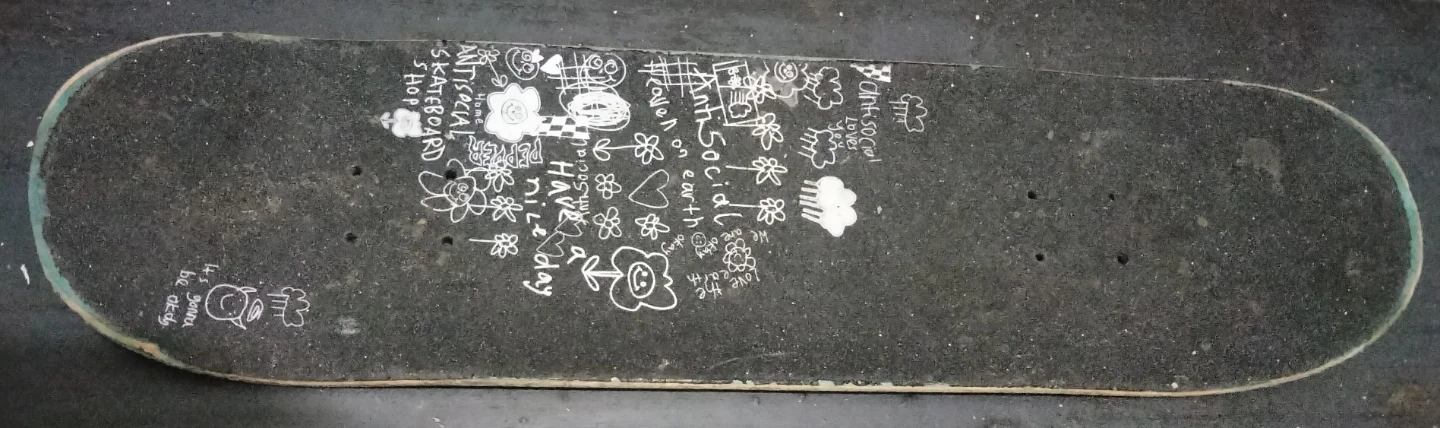 ANTISOCIAL
SKATEBOARD
SHOP
Home
Have a
nice day
AntiSocial
Heaven on
earth
Anti Social
Antisocial
Loves
you
We are
okay
okay
Love
the
earth
It's
gonna
be okay